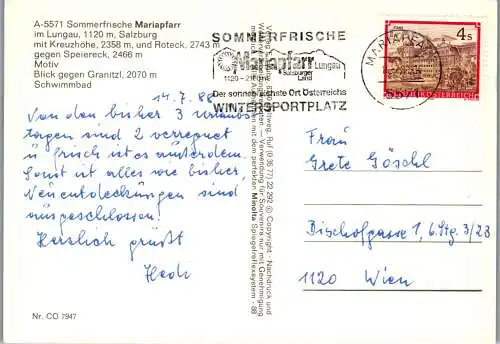 A-5571 Sommerfrische Mariapfarr
im Lungau, 1120 m, Salzburg
mit Kreuzhöhe, 2358 m, und Roteck, 2743 m
gegen Speiereck, 2466 m
Motiv
Blick gegen Granitzl, 2070 m
Schwimmbad
14.7.88
Von den bisher 3 Urlaubs
tagen sind 2 verregnet
u frisch ist es außerdem.
Sonst ist alles wie bisher,
Neuentdeckungen sind
ausgeschlossen!
Herzlich grüßt
Hedi
Nr. CO 7947
SOMMERFRISCHE
Mariapfarr Lungau
Salzburger
Land
1120 -
Der sonnenreichste Ort Österreichs
WINTERSPORTPLATZ
MARIAPFARR
5571
4 S
REPUBLIK ÖSTERREICH
(0 35 77) 22 292 © Copyright · Nachdruck und
Verwendung für Souvenirs nur mit Genehmigung
mit dem perfekten Minolta Spiegelreflexsystem · 88
Frau
Grete Göschl
Bischofgasse 1, 6. Stg. 3/23
1120 Wien